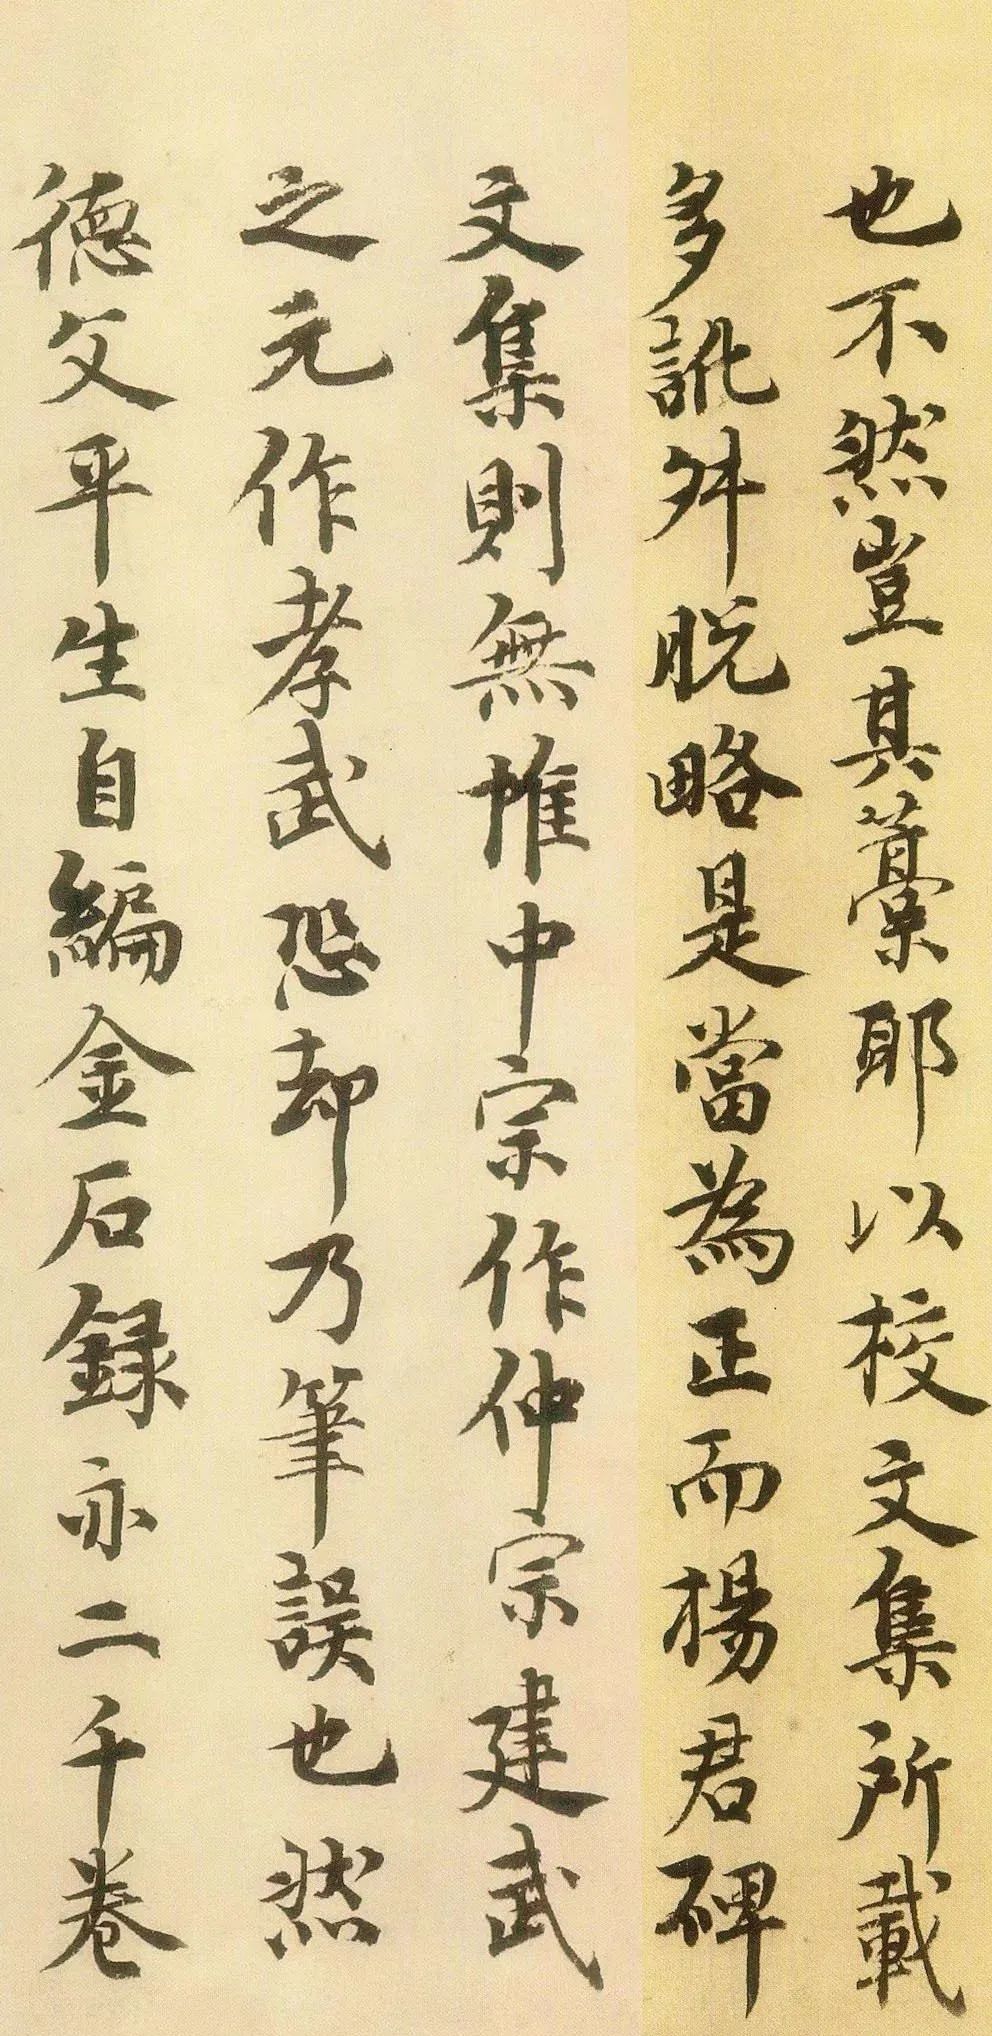 也不然豈其藁耶以校文集所載
多訛舛脱略是當為正而楊君碑
文集則無惟中宗作仲宗建武
之元作孝武恐却乃筆誤也然
徳父平生自編金石録亦二千卷